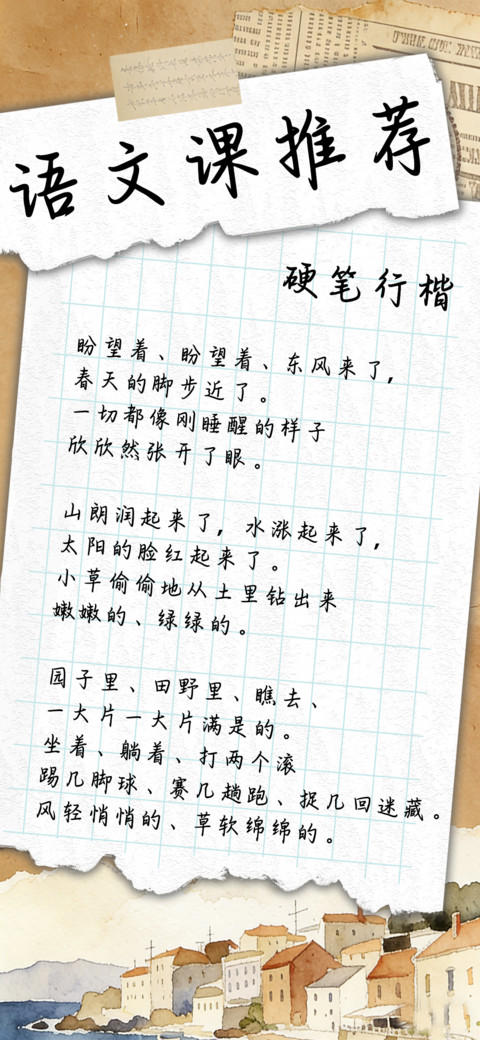 语文课推荐
硬笔行楷
盼望着、盼望着、东风来了,
春天的脚步近了。
一切都像刚睡醒的样子
欣欣然张开了眼。
山朗润起来了,水涨起来了,
太阳的脸红起来了。
小草偷偷地从土里钻出来
嫩嫩的、绿绿的。
园子里、田野里、瞧去、
一大片一大片满是的。
坐着、躺着、打两个滚
踢几脚球、赛几趟跑、捉几回迷藏。
风轻悄悄的、草软绵绵的。